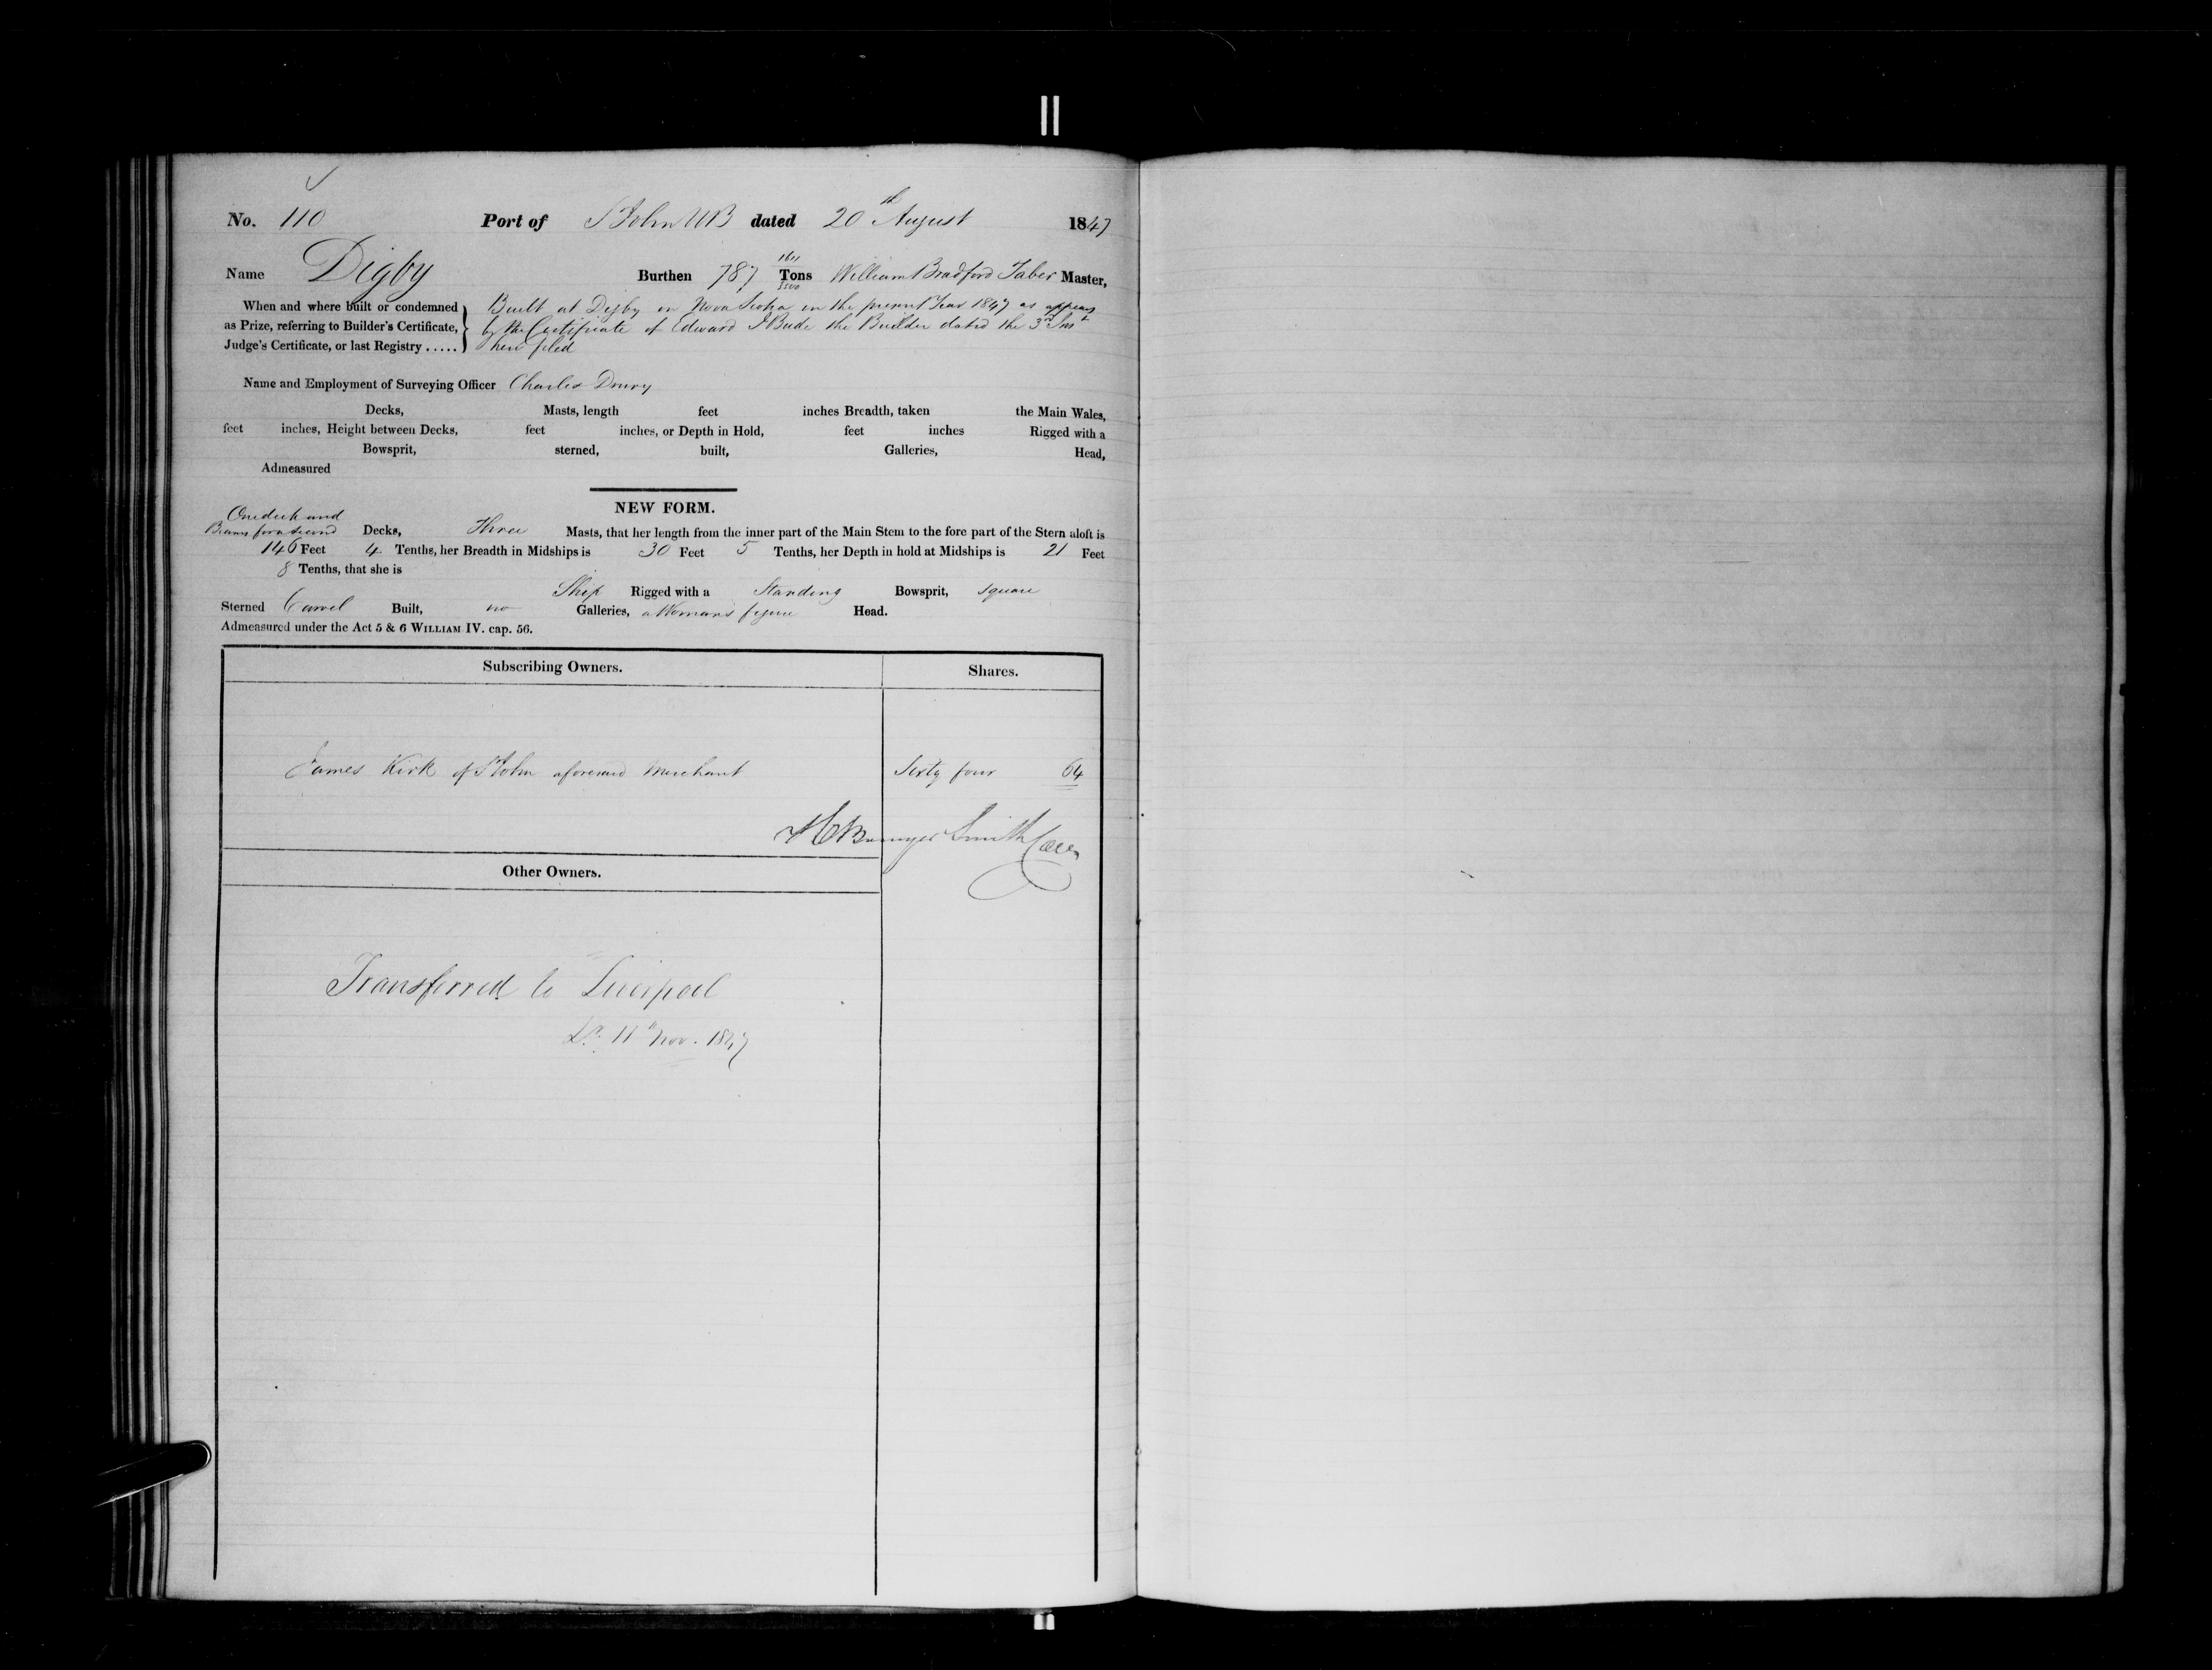 No. 110 Port of St John NB dated 20th August 1847
Name Digby Burthen 787 Tons William Bradford Taber Master,
When and where built or condemned as Prize, referring to Builder's Certificate, Judge's Certificate, or last Registry .....
Built at Digby in Nova Scotia in the present Year 1847 as appears
by the Certificate of Edward the Builder dated the 3rd Inst
here filed
Name and Employment of Surveying Officer Charles Drury
Decks, Masts, length feet inches Breadth, taken the Main Wales,
feet inches, Height between Decks, feet inches, or Depth in Hold, feet inches Rigged with a
Bowsprit, sterned, built, Galleries, Head,
Admeasured
NEW FORM.
One deck and
Beams for a second Decks, Three Masts, that her length from the inner part of the Main Stem to the fore part of the Stern aloft is
146 Feet 4 Tenths, her Breadth in Midships is 30 Feet 5 Tenths, her Depth in hold at Midships is 21 Feet
8 Tenths, that she is
Ship Rigged with a Standing Bowsprit, square
Sterned Carvel Built, no Galleries, a Womans figure Head.
Admeasured under the Act 5 & 6 WILLIAM IV. cap. 56.
Subscribing Owners. Shares.
James Kirk of St John aforesaid Merchant Sixty four 64
Smith
Other Owners.
Transferred to Liverpool
11th Nov. 1847